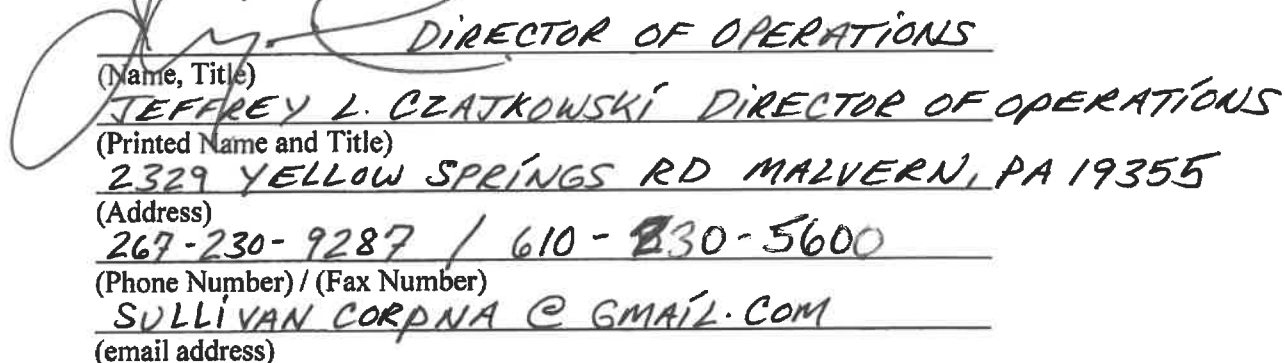 DIRECTOR OF OPERATIONS
(Name, Title)
JEFFREY L. CZAJKOWSKI DIRECTOR OF OPERATIONS
(Printed Name and Title)
2329 YELLOW SPRINGS RD MALVERN, PA 19355
(Address)
267-230-9287 / 610-
(Phone Number) / (Fax Number)
SULLIVAN CORPNA @ GMAIL.COM
(email address)